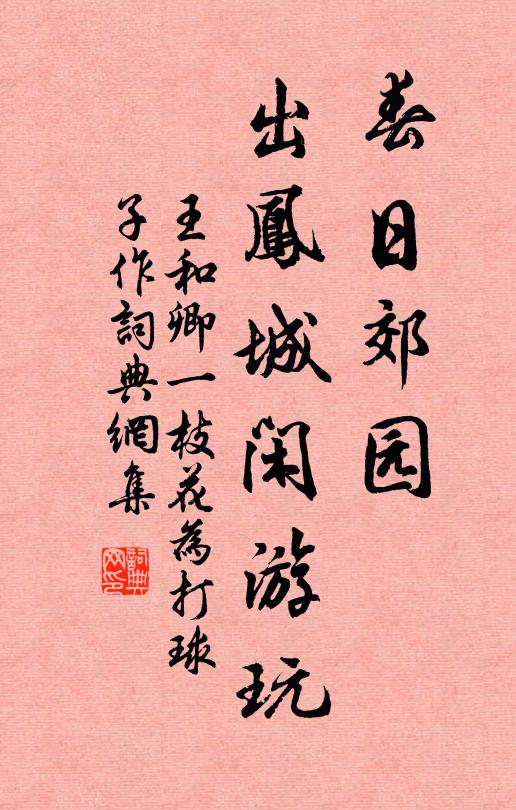 春日郊园
出鳳城闲游玩
王和卿一枝花為打球
子作詞典網集
詞典网印